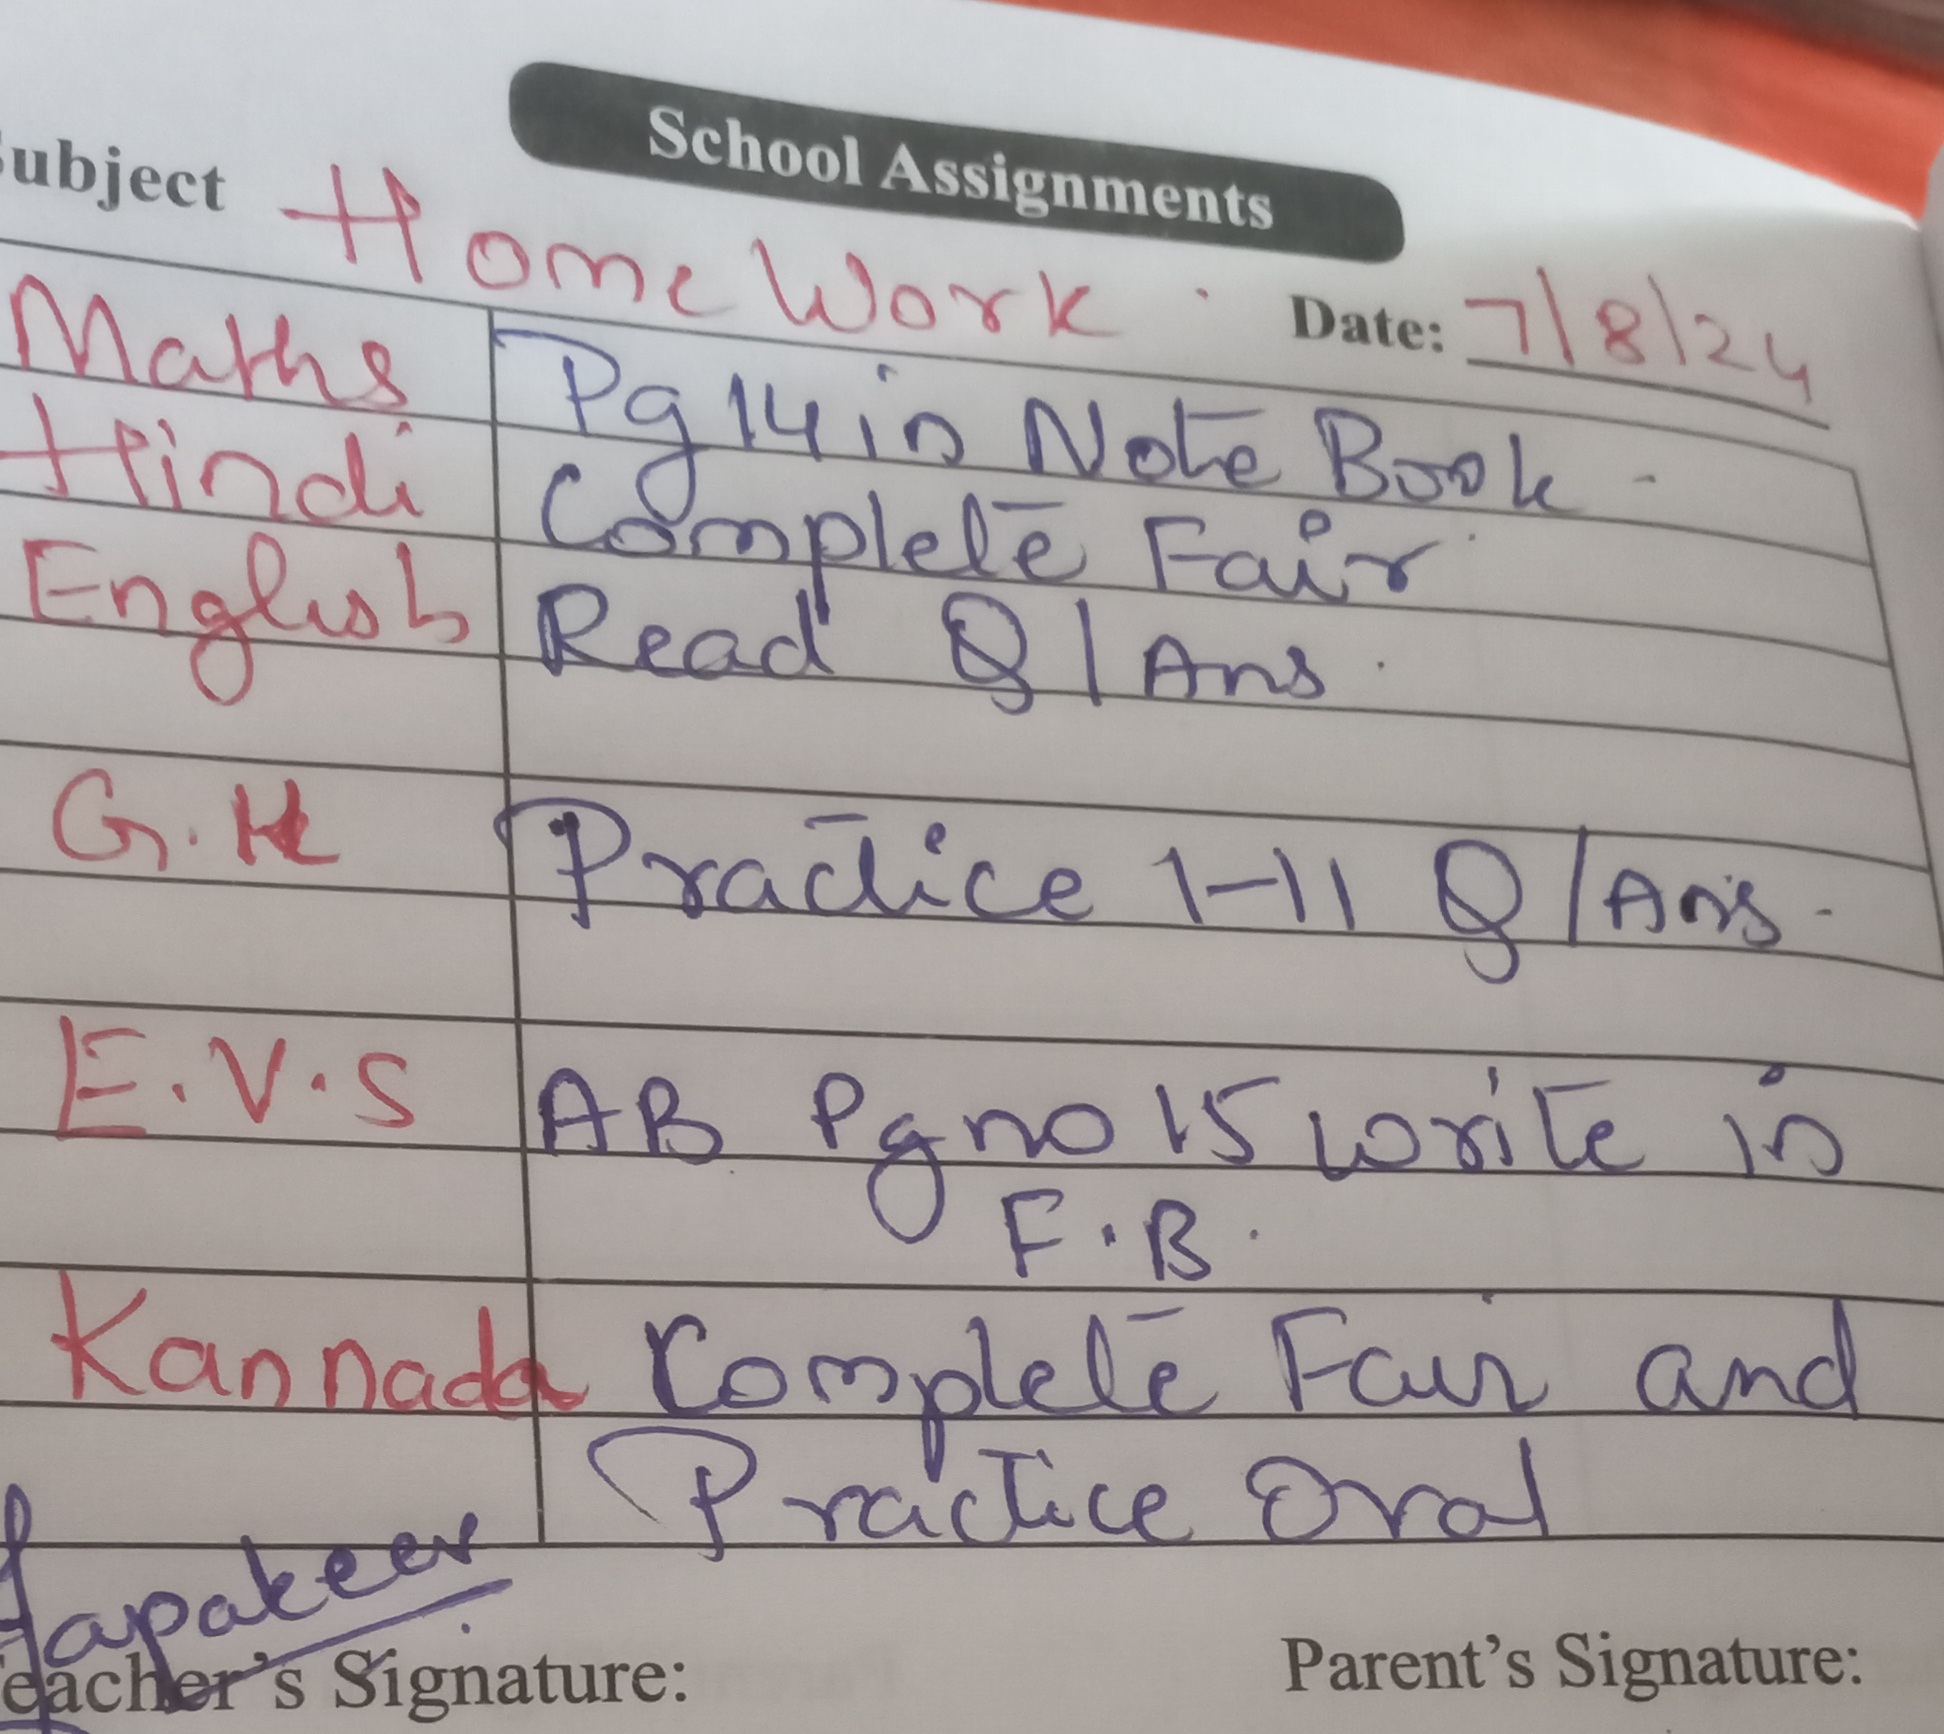 School Assignments
Subject Home Work . Date: 7/8/24
Maths Pg 14 in Note Book -
Hindi Complete Fair
English Read Q/Ans.
G.K Practice 1-11 Q/Ans.
E.V.S AB Pg no 15 write in
F.B.
Kannada Complete Fair and
Practice Oral
Teacher's Signature: Parent's Signature: